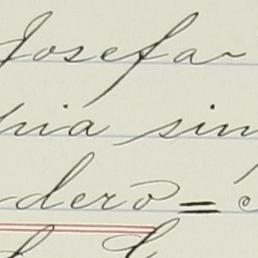 Josefa
pia sin
dero =